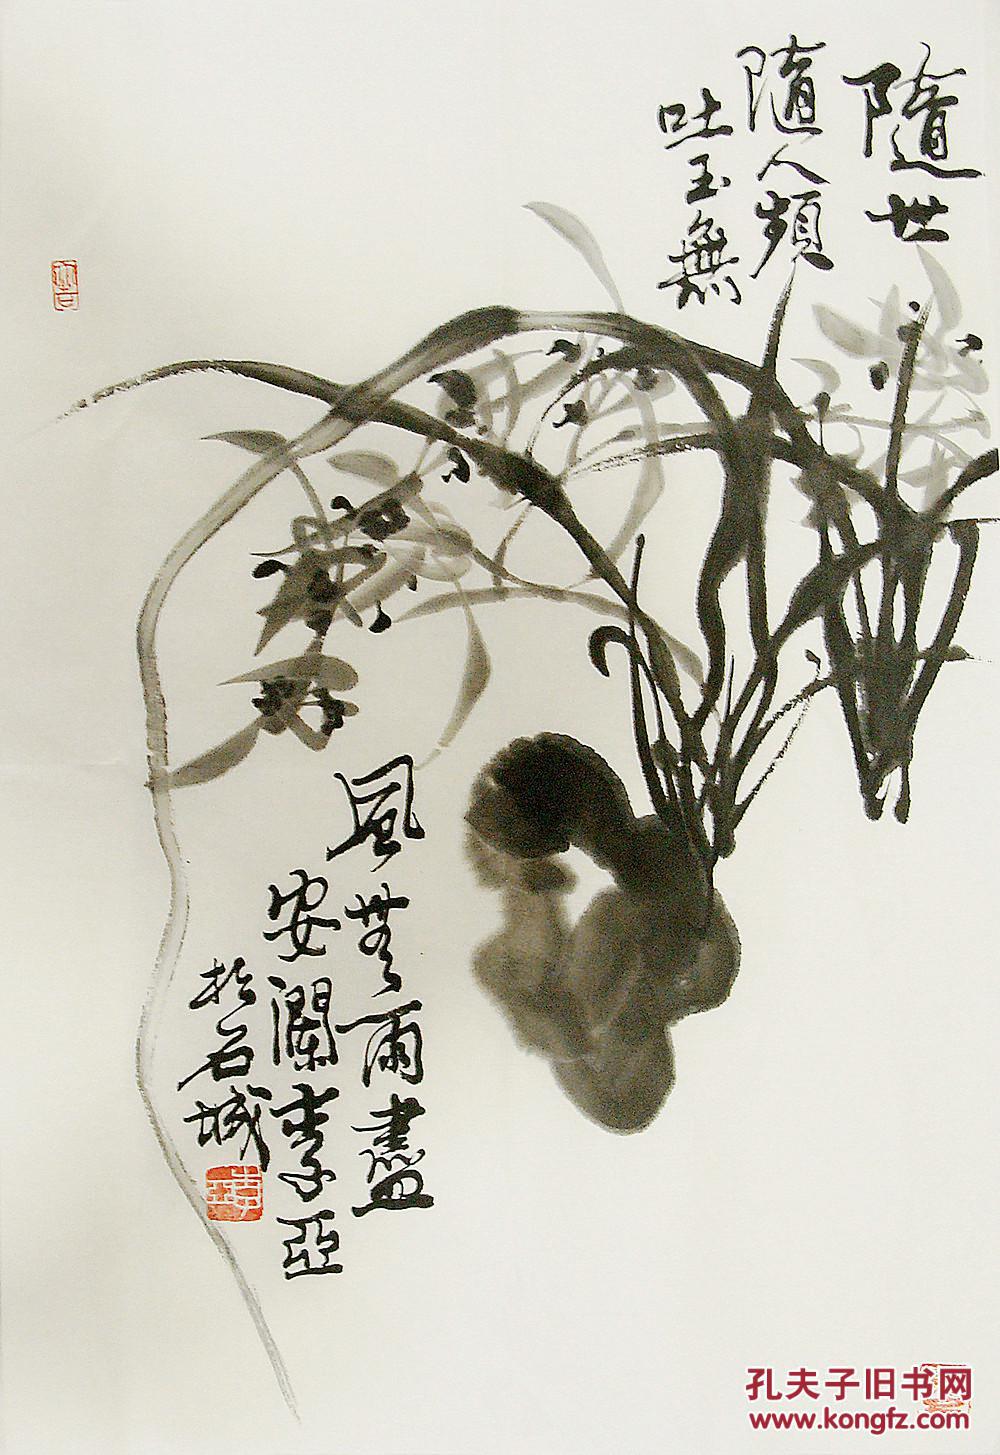 隨世
隨人頻
吐玉無
風無雨盡
安瀾李亞
於石城
孔夫子旧书网
www.kongfz.com